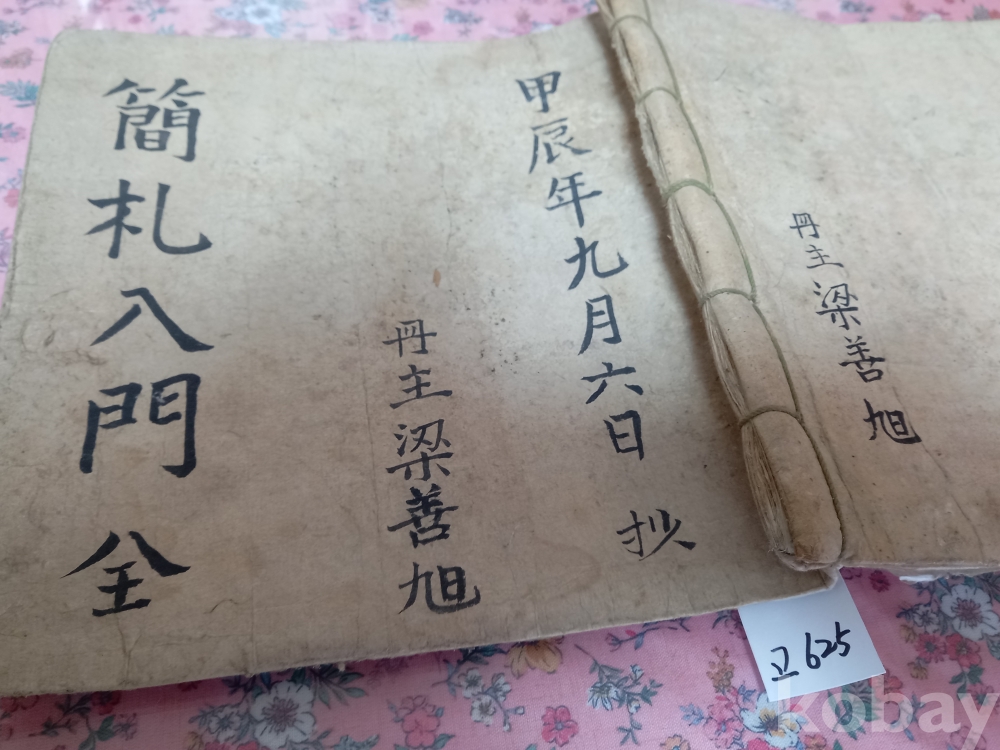 甲辰年九月六日 抄
冊主梁善旭
簡札入門 全
冊主梁善旭
고625
kobay